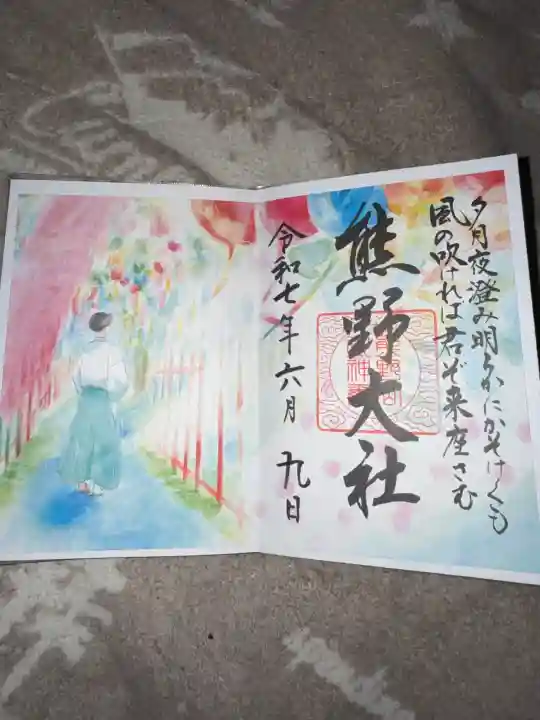 夕月夜澄み明らかにかそけくも
風の吹ければ君ぞ来座さむ
熊野大社
令和七年六月 九日